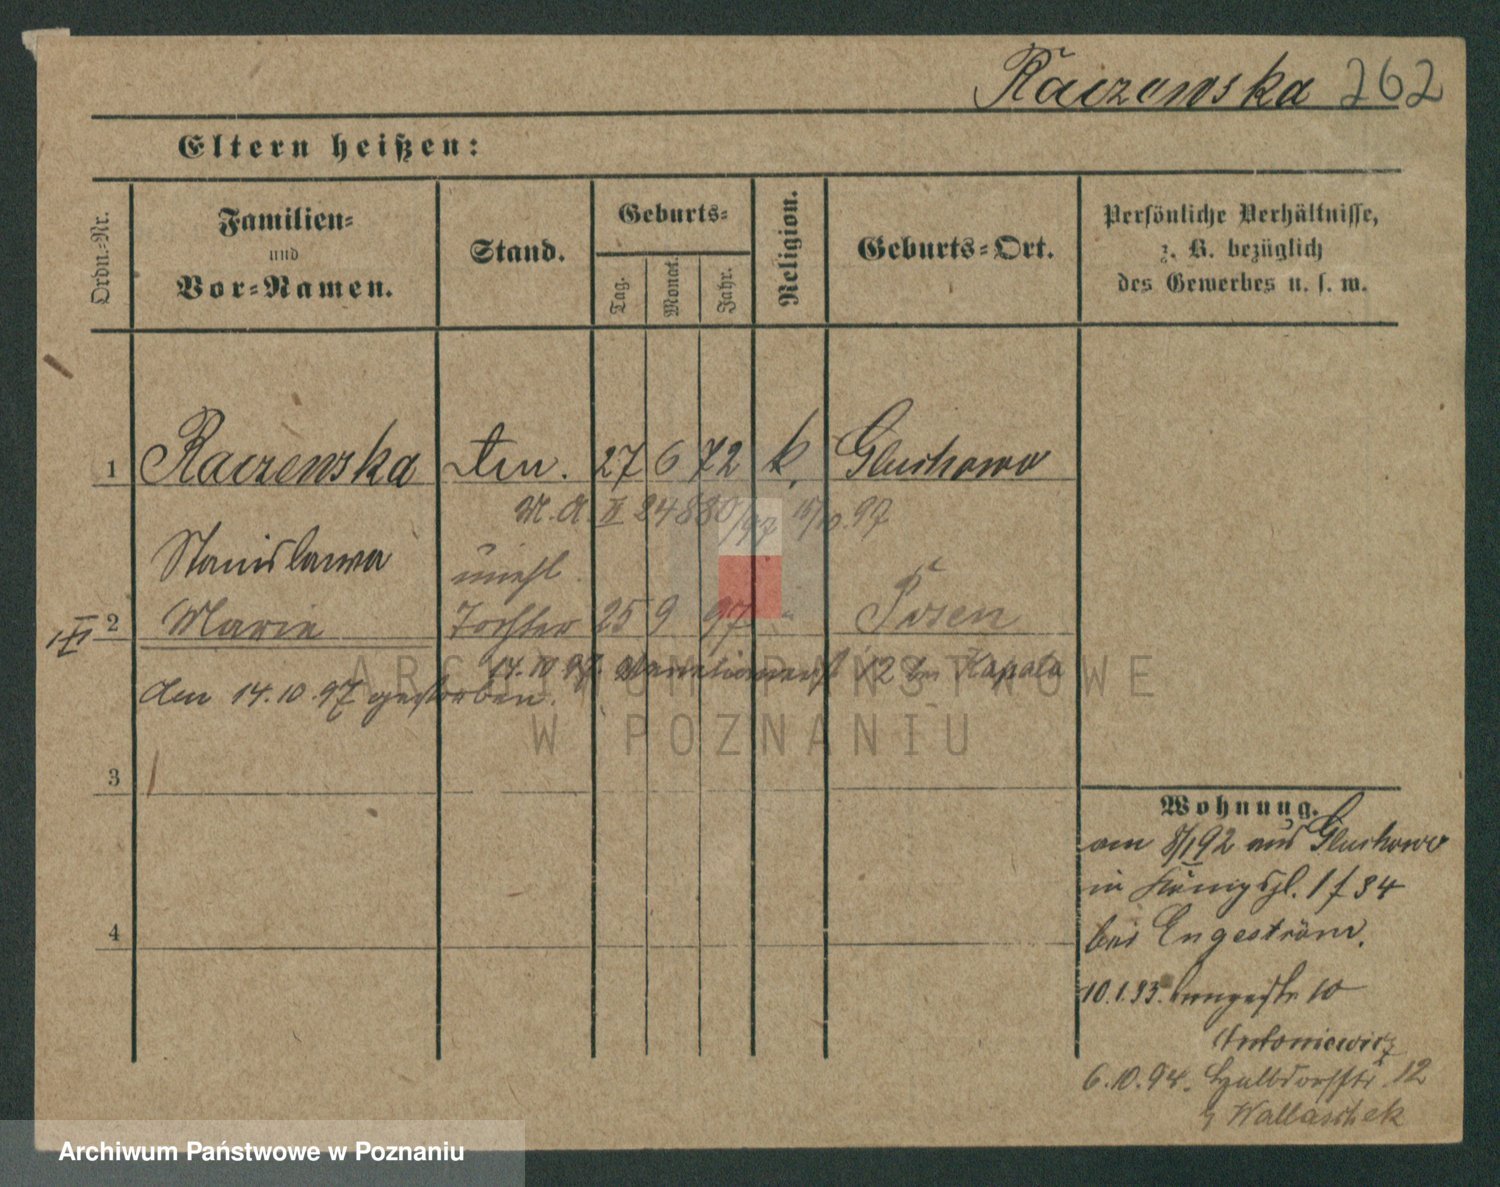 Raczewska 262
Eltern heißen:
Ordn.-Nr.
Familien-
und
Vor-Namen.
Stand.
Geburts-
Tag.
Monat.
Jahr.
Religion.
Geburts-Ort.
Persönliche Verhältnisse,
z. B. bezüglich
des Gewerbes u. s. w.
1 Raczewska 27 6 72 k. Gluchowo
M. A. II 24880/97 15/10.97
Stanislawa
unehl.
2 Marie Tochter 25 9 97 " Posen
14.10.97. 12 bei Kapala
den 14.10.97 gestorben.
3
4
Wohnung.
am 8/1 92 aus Gluchowo
in Königspl. 1 f 34
bei Engeström.
10.1.93. Langestr 10
Antoniewicz
6.10.94. Halbdorfstr. 12
Wallaschek
ARCHIWUM PAŃSTWOWE
W POZNANIU
Archiwum Państwowe w Poznaniu